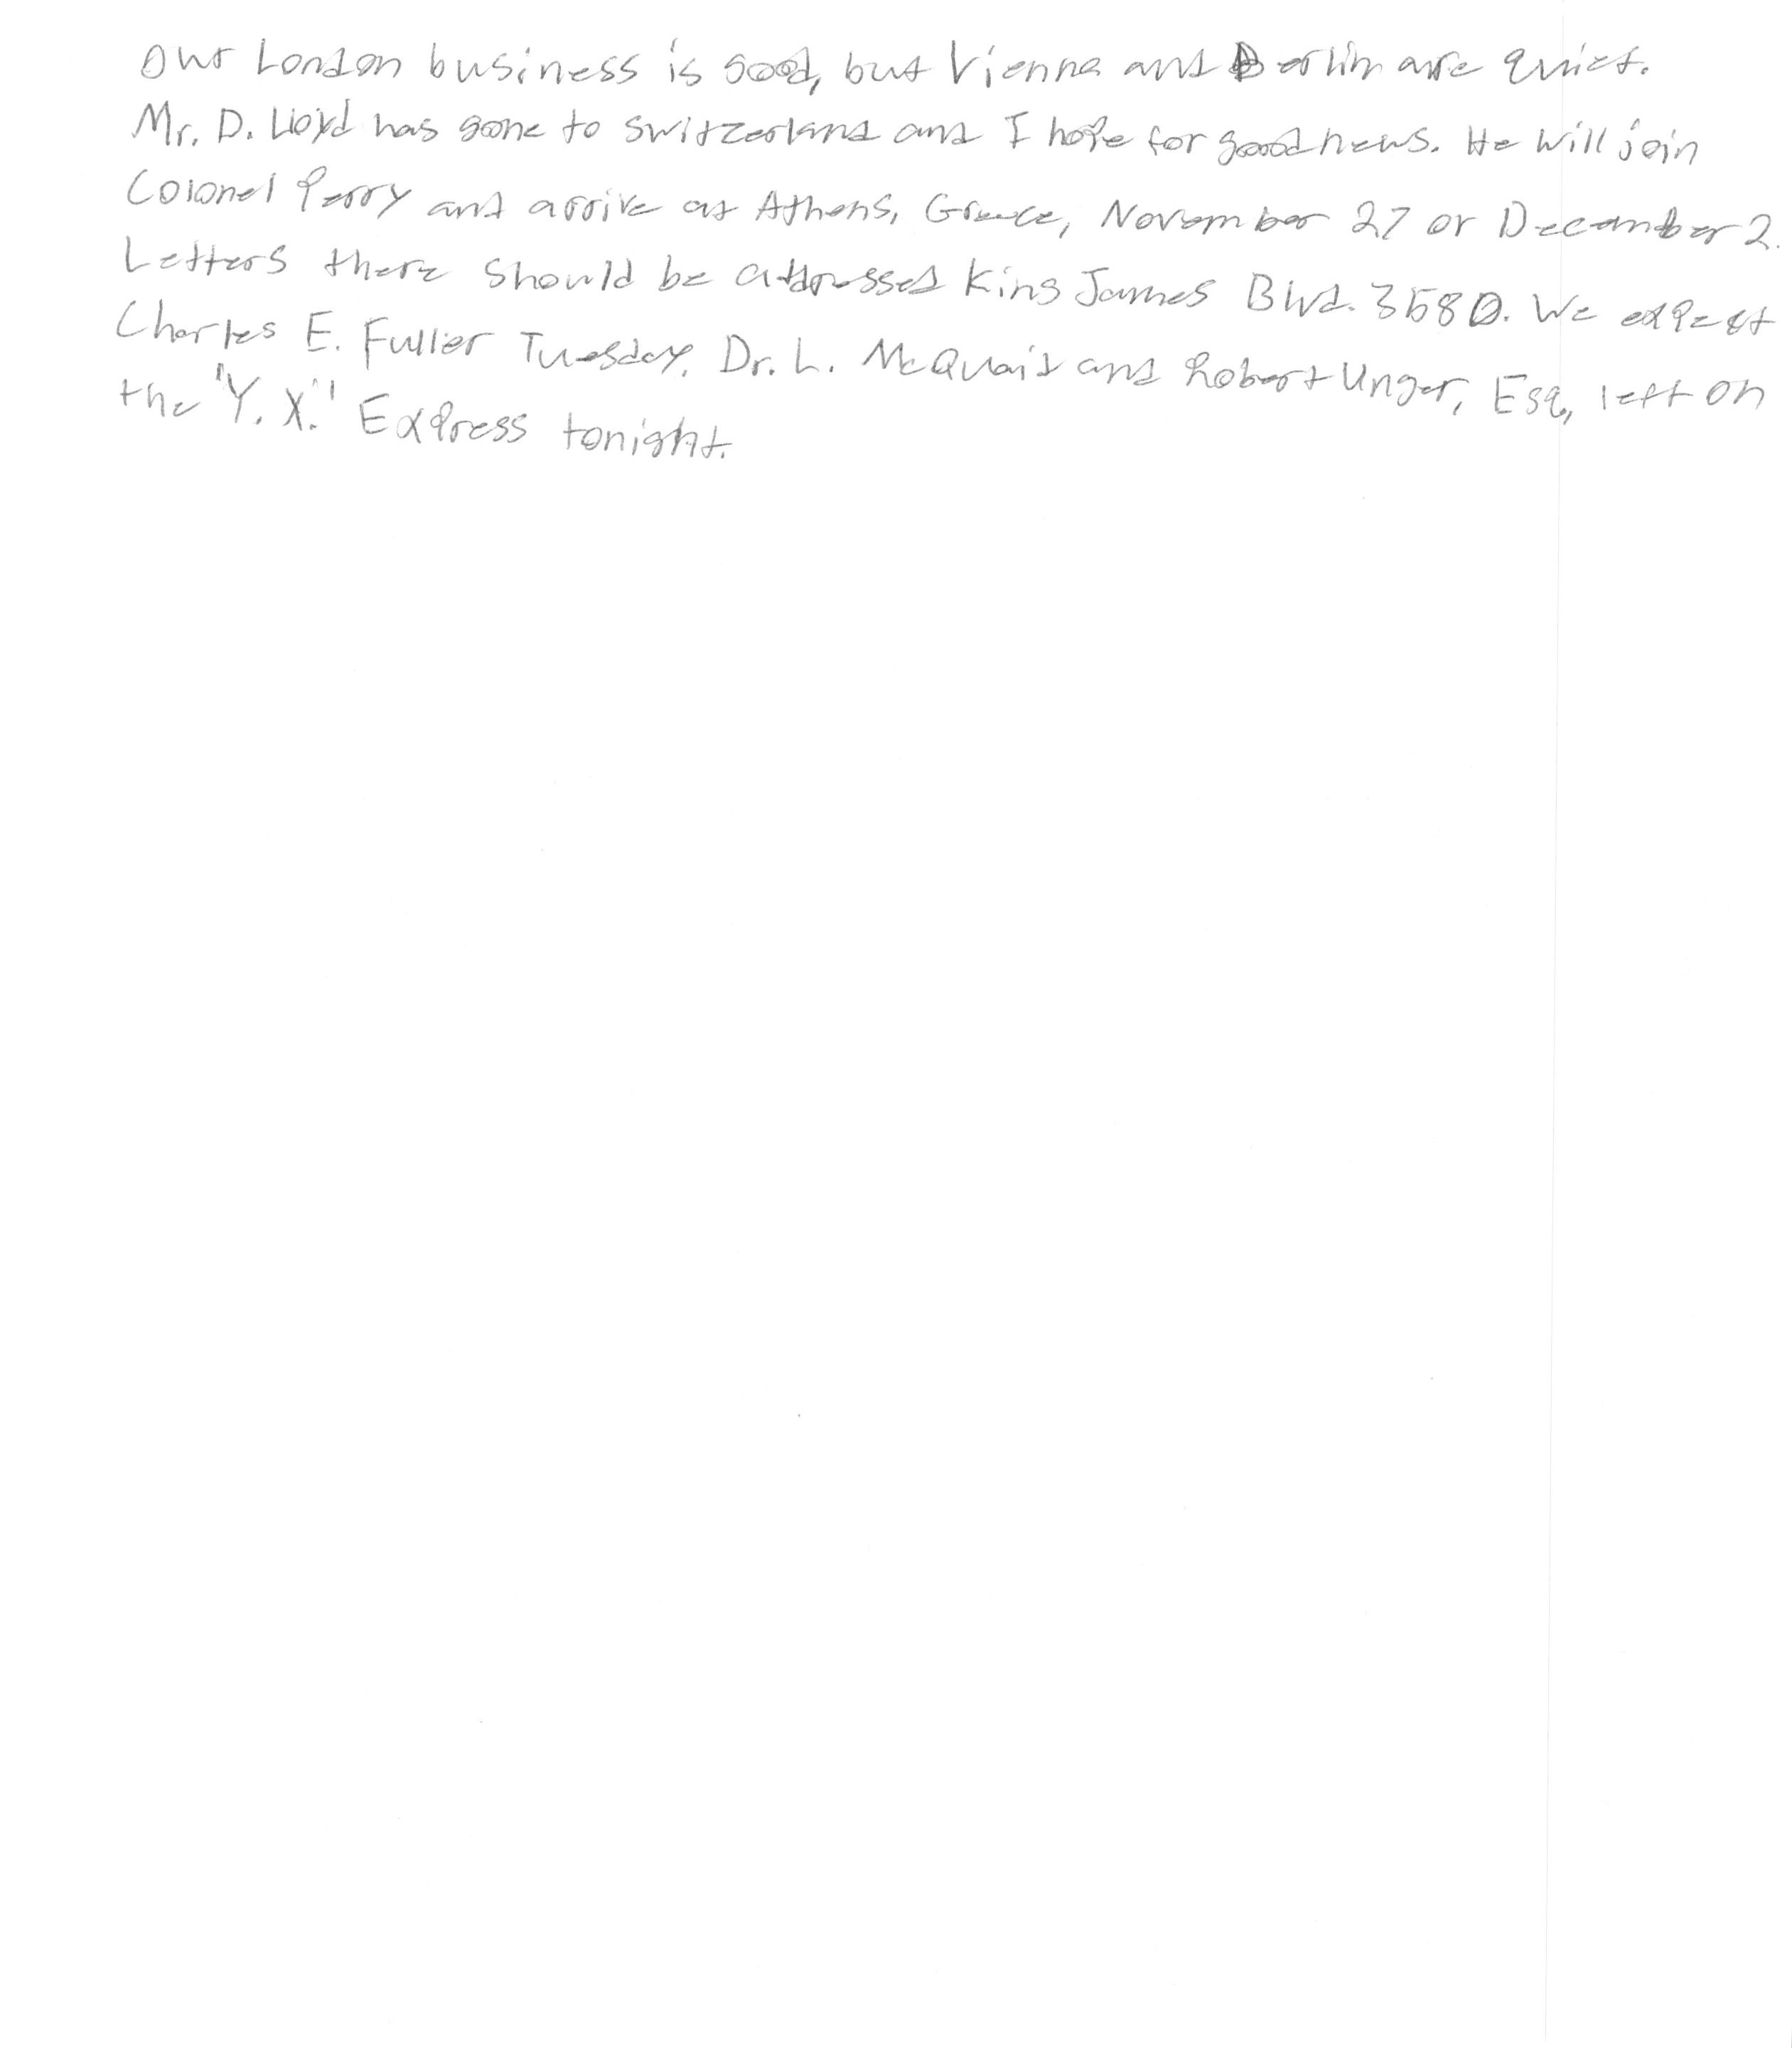 Our London business is good, but Vienna and Berlin are quiet.
Mr. D. Lloyd has gone to Switzerland and I hope for good news. He will join
Colonel Perry and arrive at Athens, Greece, November 27 or December 2.
Letters there should be addressed King James Blvd. 3580. We expect
Charles E. Fuller Tuesday. Dr. L. McQuaid and Robert Unger, Esq., left on
the "Y. X." Express tonight.